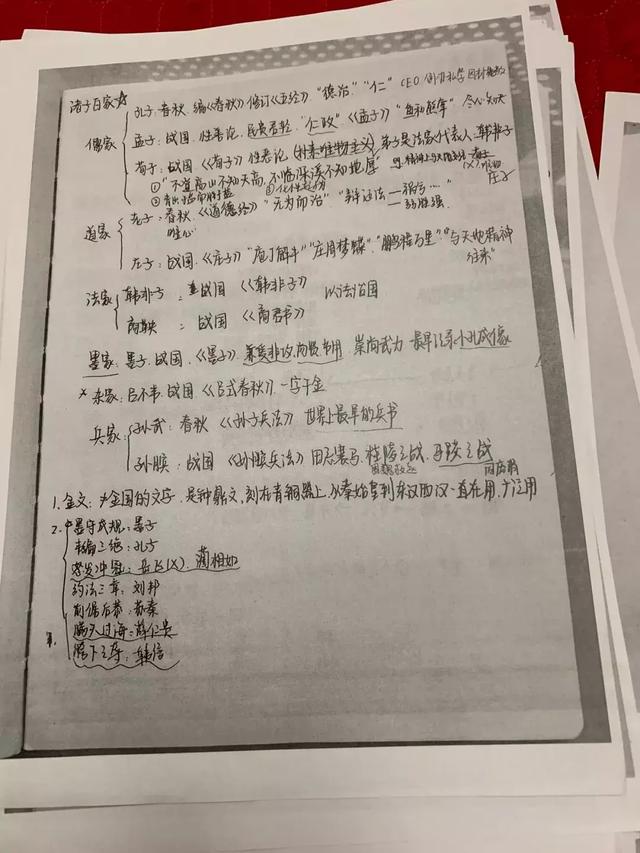 诸子百家☆
儒家
孔子:春秋.编《春秋》修订《五经》."德治""仁" CEO 创办私学
孟子:战国.性善论.民贵君轻."仁政"《孟子》"鱼和熊掌"
荀子:战国《荀子》性恶论(朴素唯物主义)弟子是法家代表人.韩非子
①"不登高山不知天高,不临深溪不知地厚"
庄子
道家
老子:春秋.《道德经》"无为而治""辩证法—
唯心
庄子:战国.《庄子》"庖丁解牛""庄周梦蝶""鹏程万里""与天地精神
往来"
法家
韩非子:战国《韩非子》 以法治国
商鞅:战国《商君书》
墨家:墨子.战国.《墨子》.兼爱非攻.尚贤节用 崇尚武力 最早记录小孔成像
×杂家:吕不韦.战国《吕氏春秋》.一字千金
兵家
孙武:春秋《孙子兵法》世界上最早的兵书
孙膑:战国《孙膑兵法》田忌赛马.桂陵之战.马陵之战
围魏救赵
1.金文:≠金国的文字.是钟鼎文,刻在青铜器上.从秦始皇到东汉西汉一直在用.广泛用
2.
墨守成规:墨子
韦编三绝:孔子
怒发冲冠:岳飞(×).蔺相如
约法三章:刘邦
前倨后恭:苏秦
瞒天过海:薛仁贵
胯下之辱:韩信